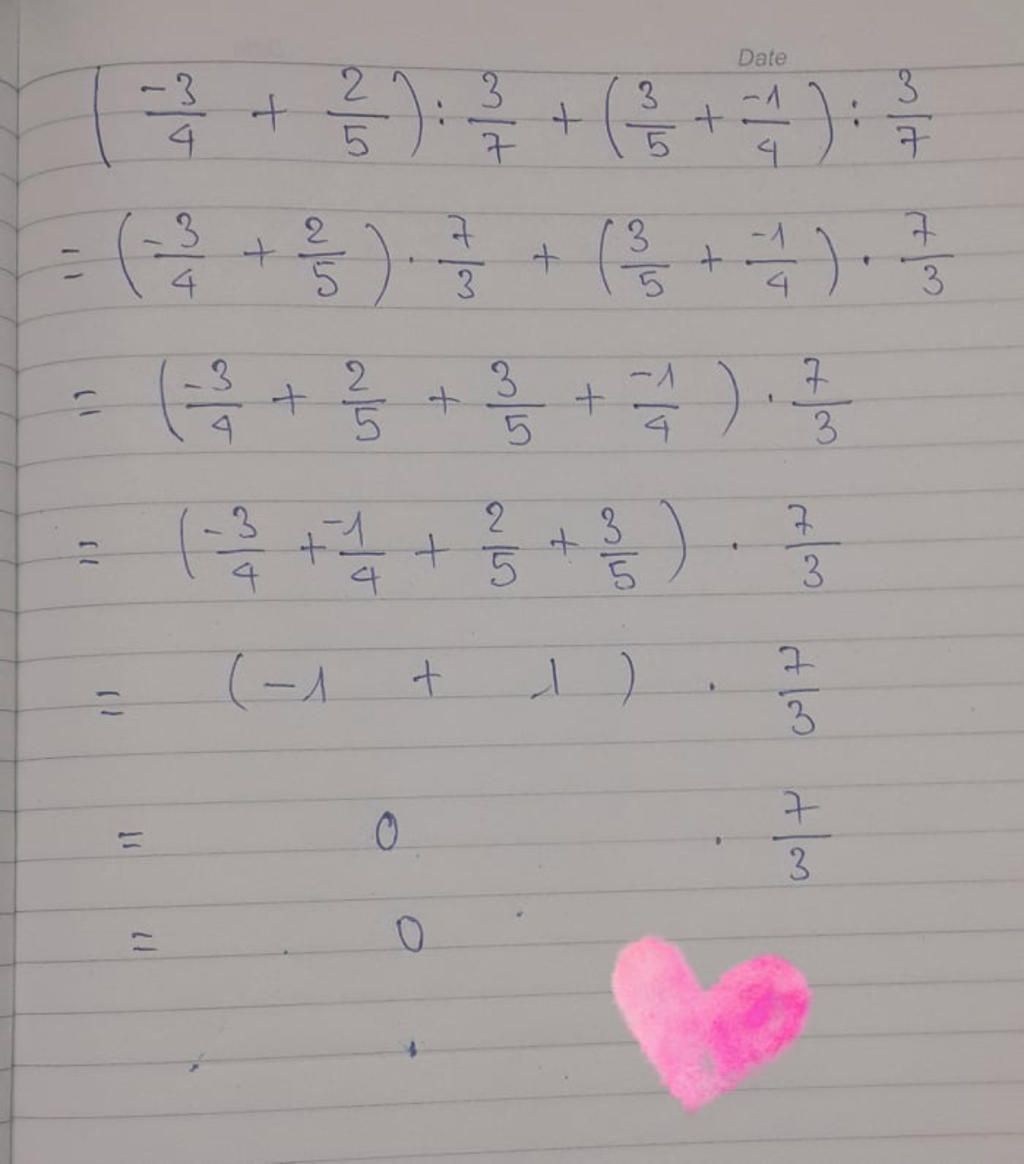 Date
(-3/4 + 2/5) : 3/7 + (3/5 + -1/4) : 3/7
= (-3/4 + 2/5) . 7/3 + (3/5 + -1/4) . 7/3
= (-3/4 + 2/5 + 3/5 + -1/4) . 7/3
= (-3/4 + -1/4 + 2/5 + 3/5) . 7/3
= (-1 + 1) . 7/3
= 0 . 7/3
= 0